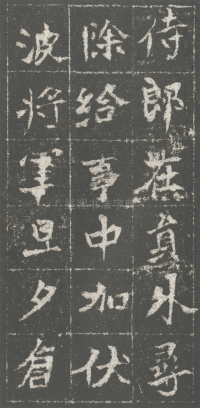 侍郎在員外尋
除給事中加伏
波將軍旦夕倉